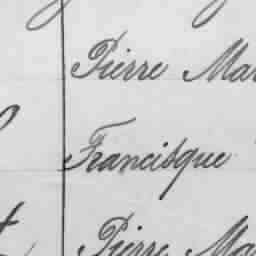 Pierre Mar
Francisque
Pierre Ma